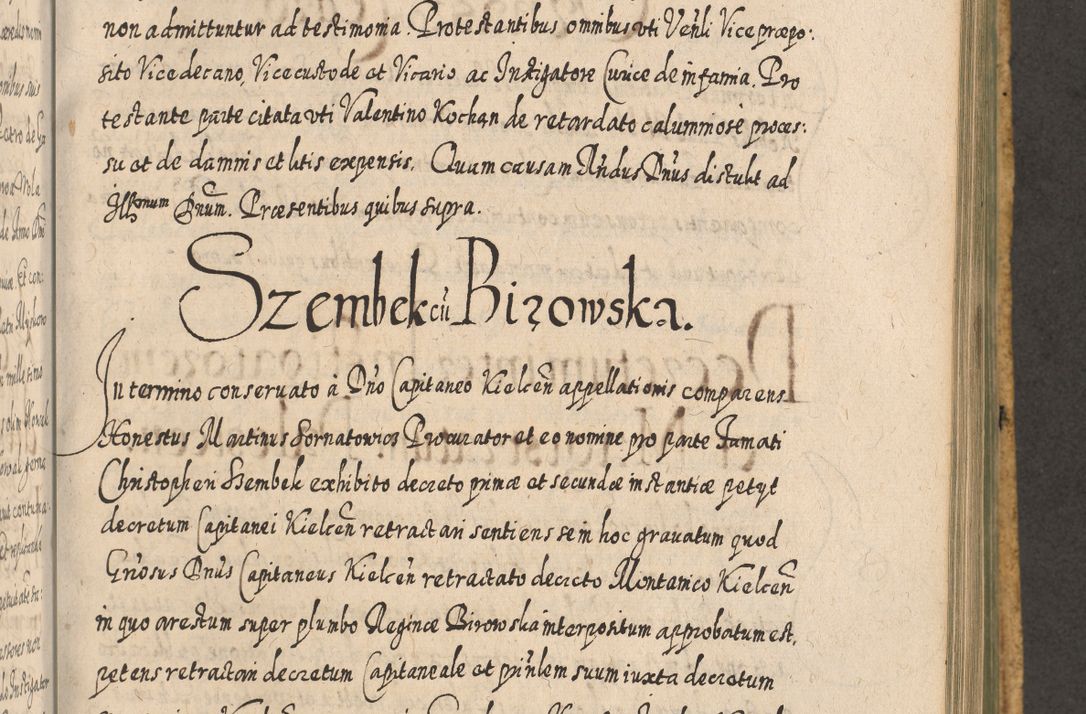 non admittuntur ad testimonia. Protestantibus omnibus uti Venli Vicepræpo:
sito Vicedecano, Vicecustode et Vicario ac Instigatore Curiæ de infamia. Pro
testante parte citata uti Valentino Kochan de retardato calumniose proces:
su et de damnis et litis expensis. Quam causam Rndus Dnus distulit ad
Dnum. Præsentibus quibus supra.
Szembek cu Birowska.
In termino conservato à Dno Capitaneo Kielcen appellationis comparens
Honestus Martinus Fornatowicz Procurator et eo nomine pro parte Famati
Christopheri Szembek exhibito decreto primæ et secundæ instantiæ petyt
decretum Capitanei Kielcen retractari sentiens se in hoc gravatum quod
Gnosus Dnus Capitaneus Kielcen retractato decreto Montanico Kielcen
in quo arestum super plumbo Reginæ Birowska interpositum approbatum est,
petens retractari decretum Capitaneale et prinlem suum iuxta decretum